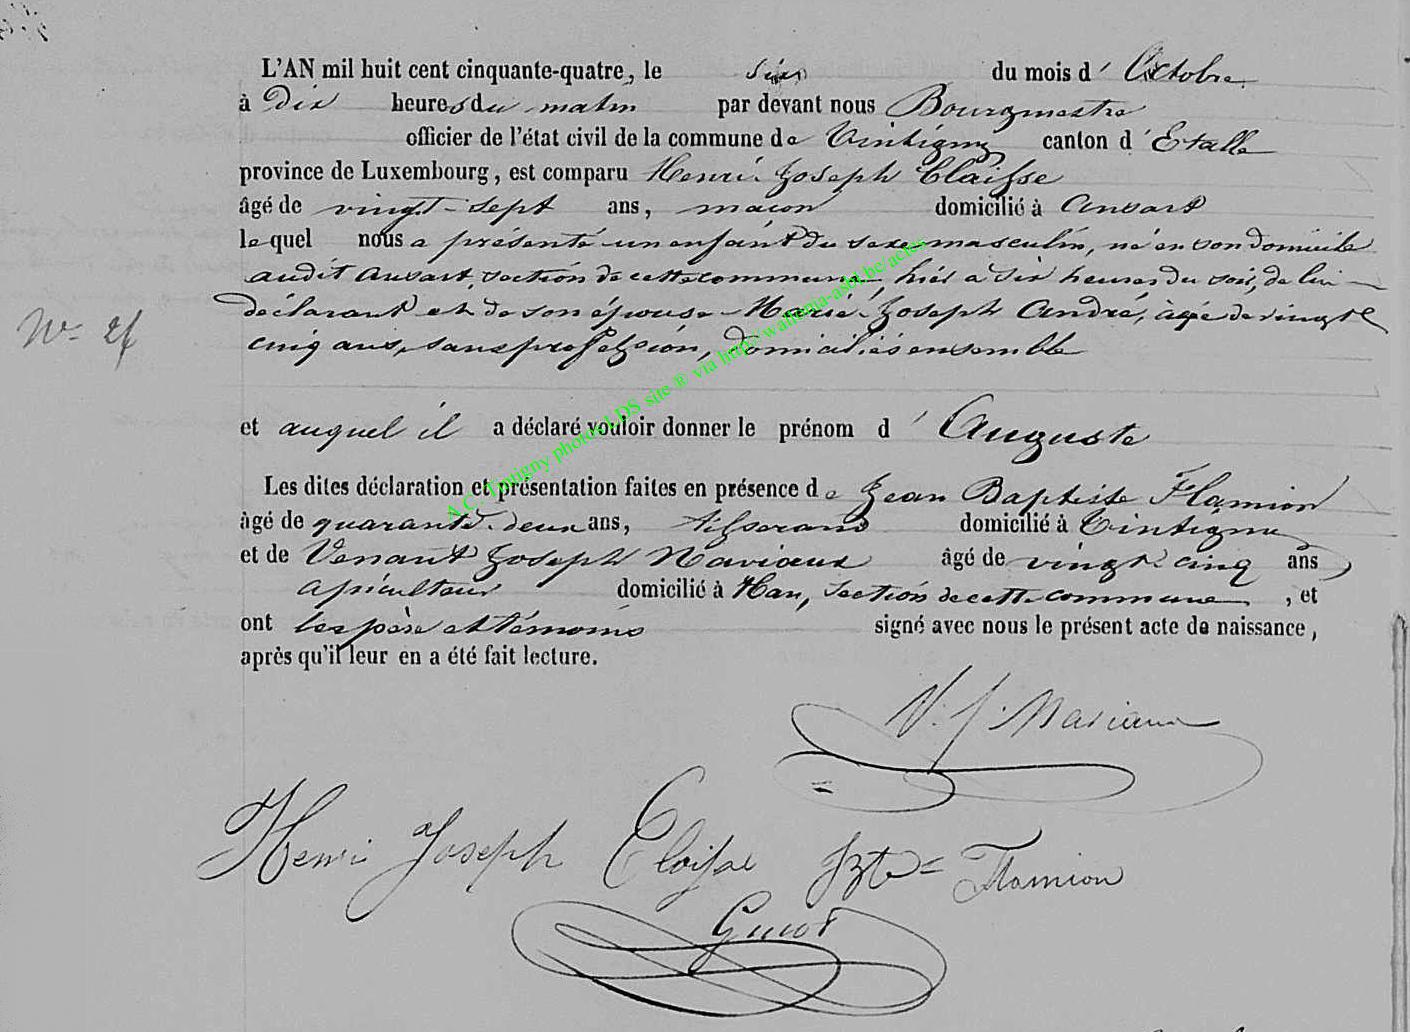 L'AN mil huit cent cinquante-quatre, le six du mois d' Octobre
à Dix heures du matin par devant nous Bourgmestre
officier de l'état civil de la commune de Tintigny canton d' Etalle
province de Luxembourg, est comparu Henri Joseph Claisse
âgé de vingt-sept ans, maçon domicilié à Ansart
lequel nous a présenté un enfant du sexe masculin, né en son domicile
audit Ansart, section de cette commune, hier à six heures du soir, de lui
déclarant et de son épouse Marie Joseph André, âgée de vingt
cinq ans, sans profession, domiciliés ensemble
N°
et auquel il a déclaré vouloir donner le prénom d' Auguste
Les dites déclaration et présentation faites en présence de Jean Baptiste Flamion
âgé de quarante-deux ans, tisserand domicilié à Tintigny
et de Venant Joseph Maviaux âgé de vingt cinq ans
apiculteur domicilié à Han, section de cette commune, et
ont les père et témoins signé avec nous le présent acte de naissance,
après qu'il leur en a été fait lecture.
V. J.
Henri Joseph Claisse JBte Flamion
Guiot
A.C. Tintigny photos LDS site ® via http://wallonia-asbl.be/actes